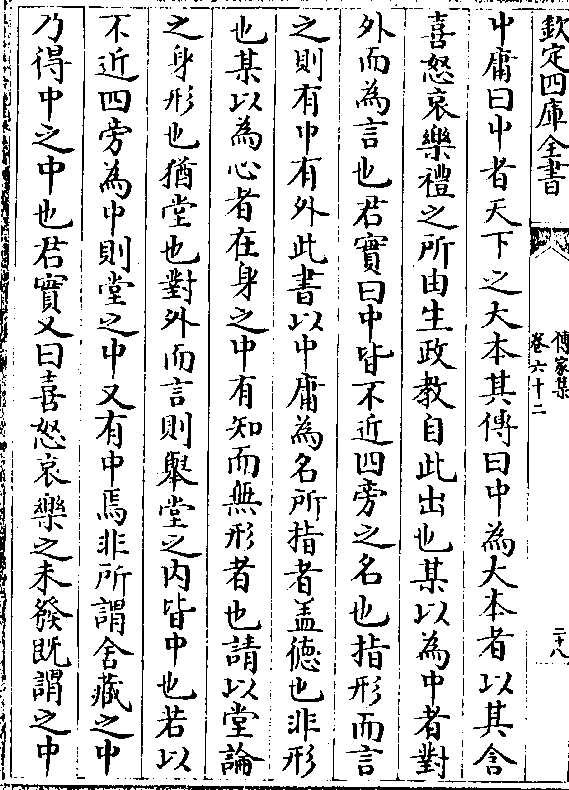 欽定四庫全書
傳家集
卷六十二
二十八
中庸曰中者天下之大本其傳曰中為大本者以其含
喜怒哀樂禮之所由生政教自此出也某以為中者對
外而為言也君實曰中皆不近四旁之名也指形而言
之則有中有外此書以中庸為名所指者盖德也非形
也某以為心者在身之中有知而無形者也請以堂論
之身形也猶堂也對外而言則舉堂之内皆中也若以
不近四旁為中則堂之中又有中焉非所謂含藏之中
乃得中之中也君實又曰喜怒哀樂之未發既謂之中